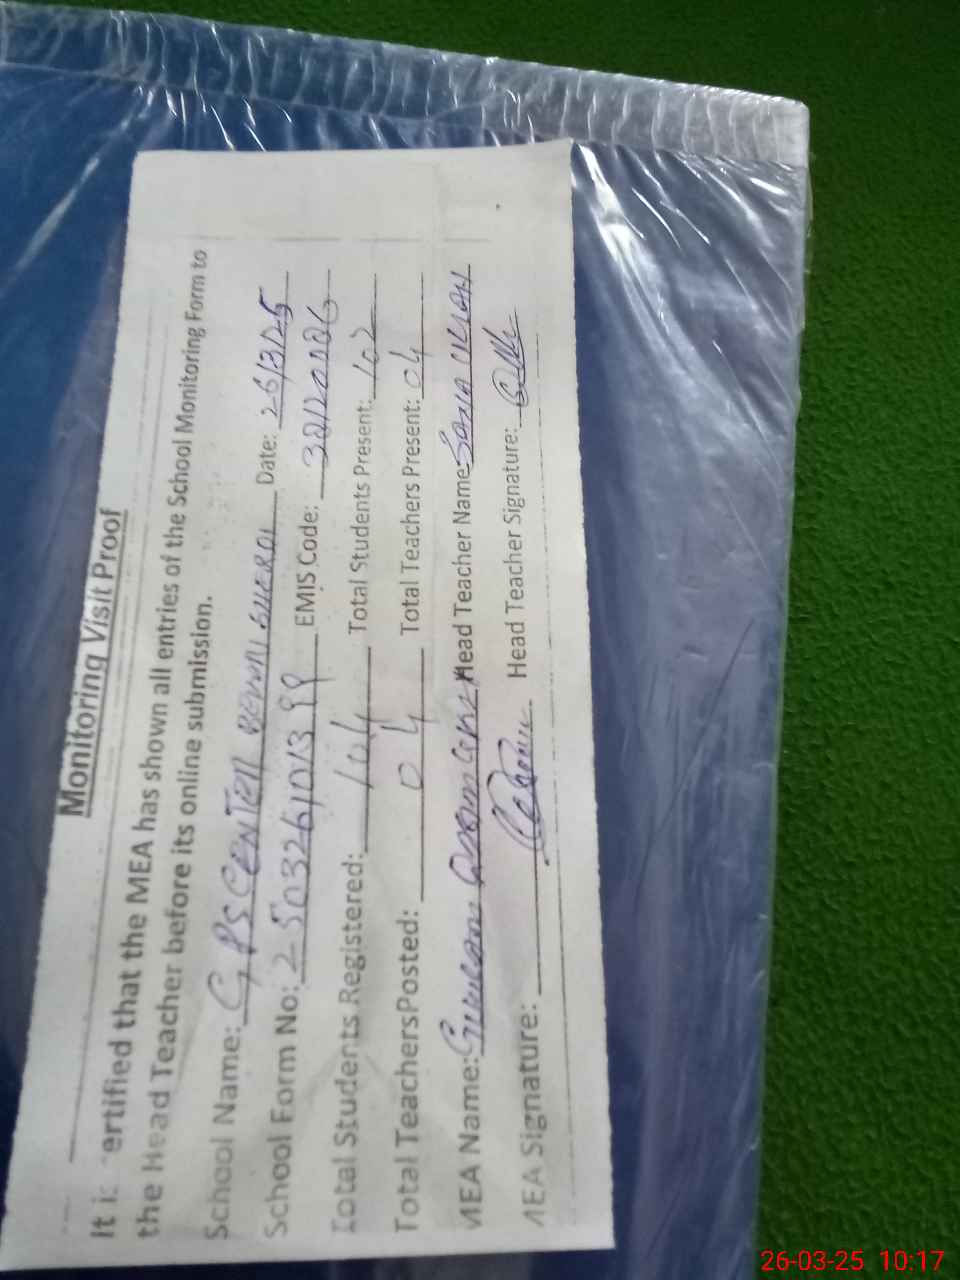 Monitoring Visit Proof
It is certified that the MEA has shown all entries of the School Monitoring Form to
the Head Teacher before its online submission.
School Name: G PS CENTER Date: 26/3/25
School Form No: 2-5032610139 EMIS Code:
Total Students Registered: 104 Total Students Present: 102
Total TeachersPosted: 04 Total Teachers Present: 04
MEA Name: Head Teacher Name:
MEA Signature: Head Teacher Signature:
26-03-25 10:17